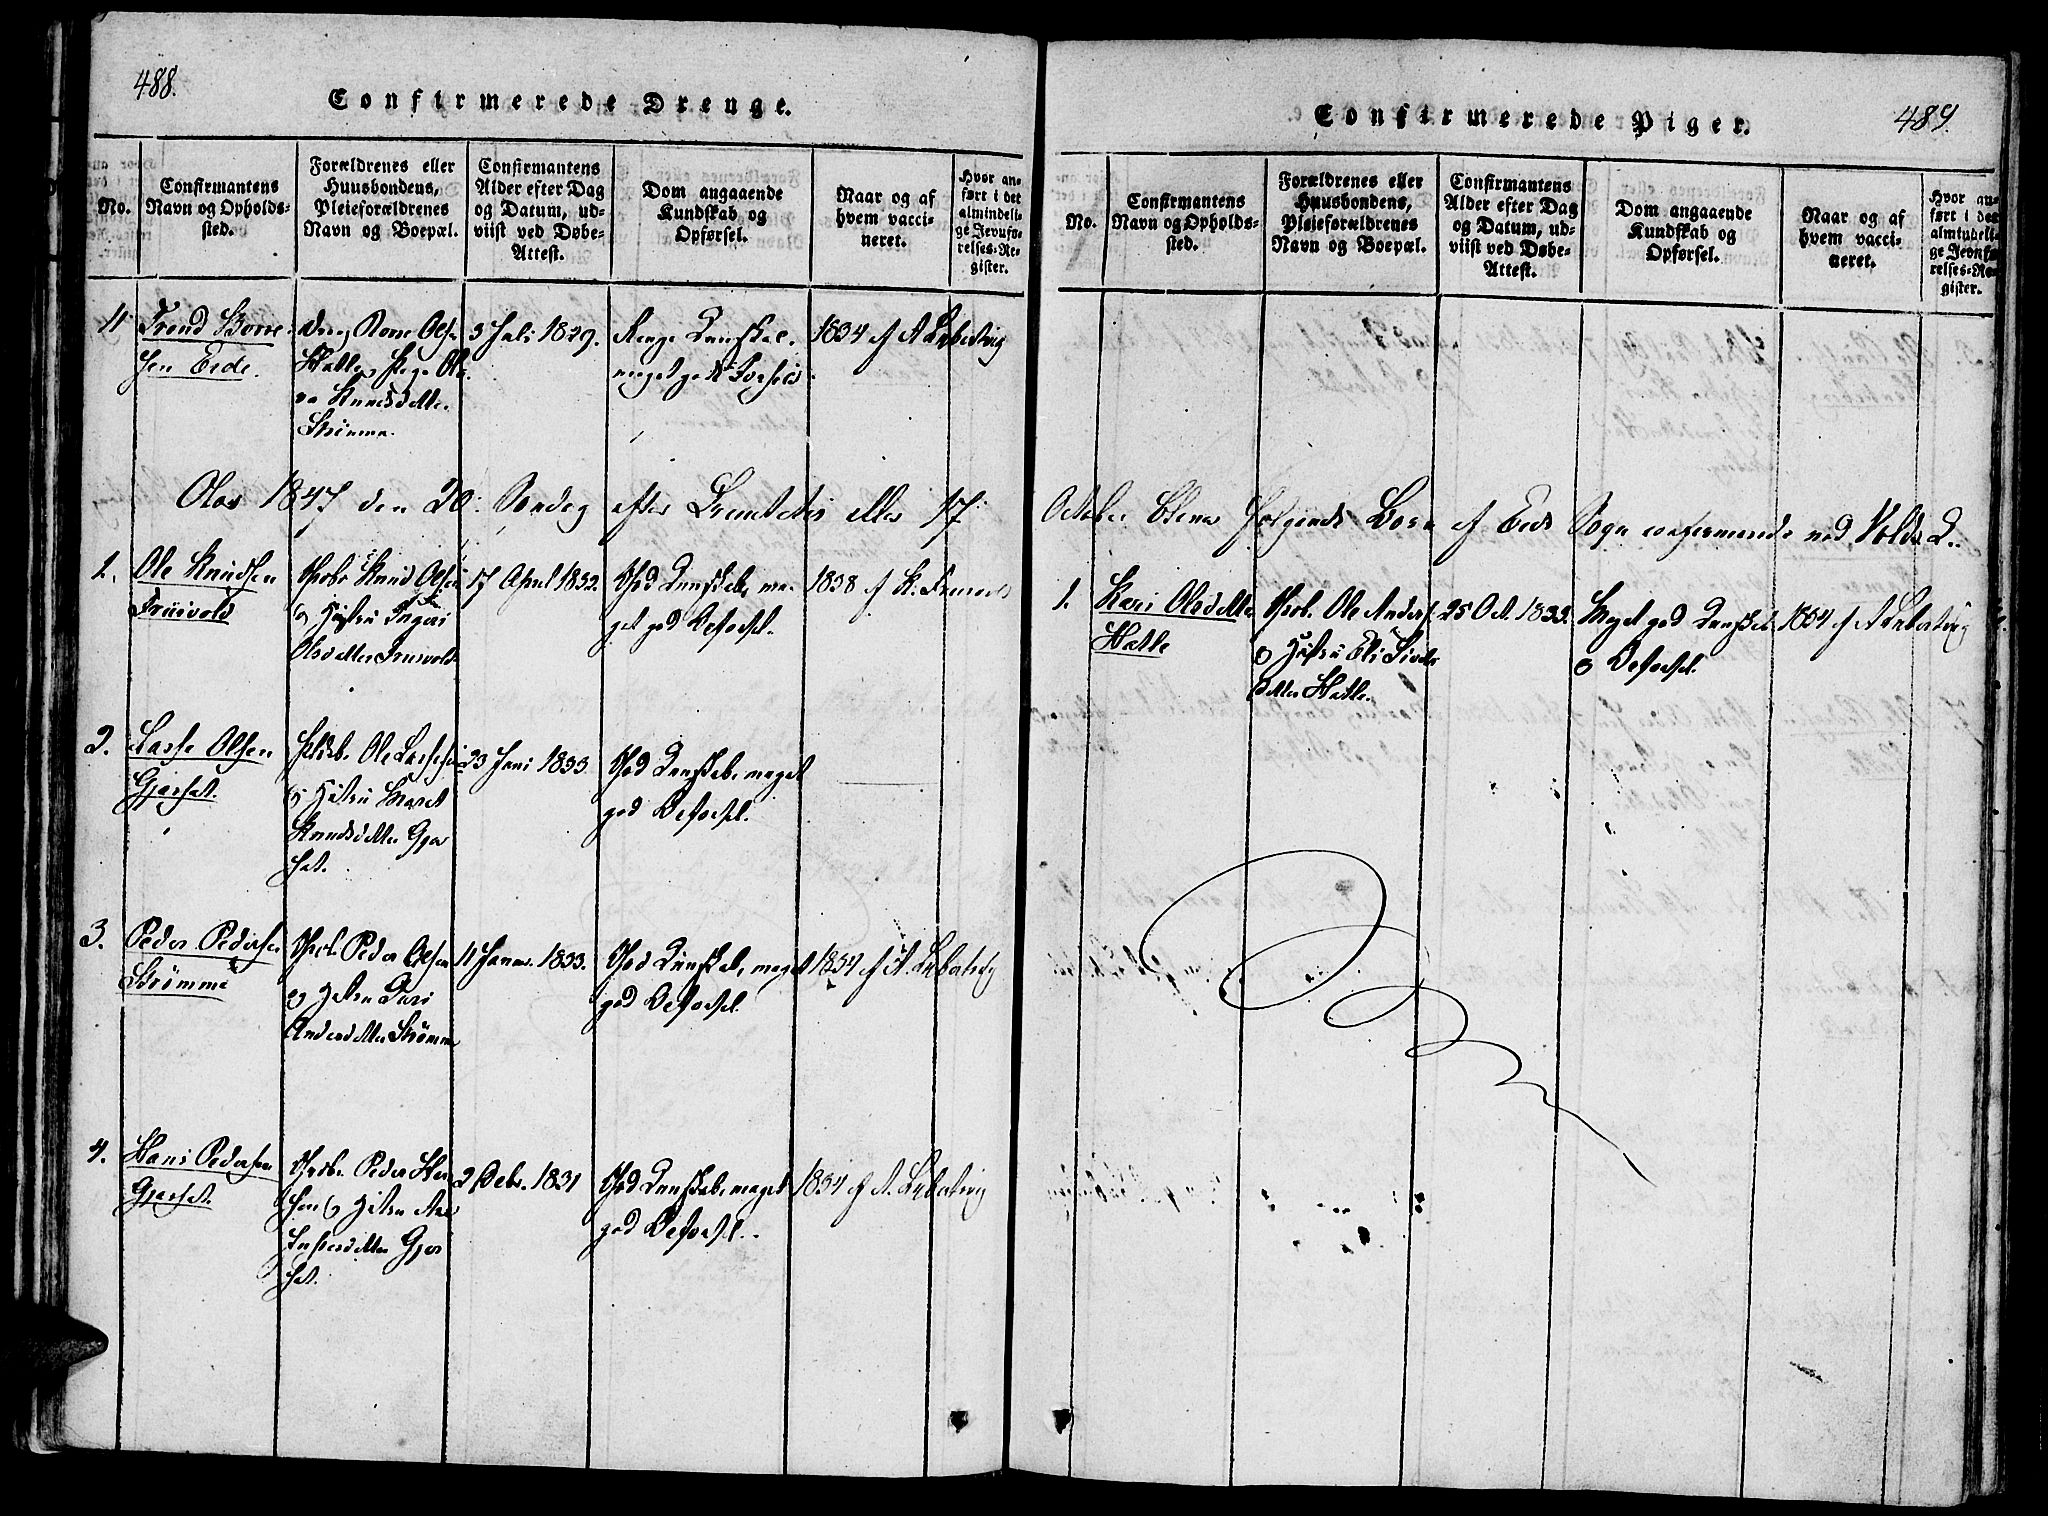 488.
Confirmerede Drenge.
No.
Confirmantens
Navn og Opholds-
sted.
Forældrenes eller
Huusbondens,
Pleieforældrenes
Navn og Boepæl.
Confirmantens
Alder efter Dag
og Datum, ud-
viist ved Døbe-
Attest.
Dom angaaende
Kundskab og
Opførsel.
Naar og af
hvem vacci-
neret.
Hvor an-
ført i det
almindeli-
ge Jevnfø-
relses-Re-
gister.
11
Trond
sen Eide.
Olsen
Hatle
Knudsdatter
Strømme.
3 Juli 1829.
meget god
1834 af A
Aar 1847 den 20 Søndag efter Trinitatis eller 17
1.
Ole Knudsen
Knud Olsen
Hustru Ingeri
Olsdatter
17 April 1832.
God Kundskab, me-
get god Opførsel.
1838 af K.
2.
Lasse Olsen
Gjerset.
Ole Lassesen
og Hustru Maret
Knudsdatter Gjer
set.
23 Juni 1833
God Kundskab, meget
god Opførsel.
3.
Peder Pedersen
Strømme
Peder Olsen
og Hustru Kari
Andersdatter Strømme
11 Januar 1833.
God Kundskab, meget
god Opførsel.
1834 af A.
4.
Hans Pedersen
Gjerset.
Peder Han
sen og Hustru
Gjer
set.
2 Febr. 1831
God Kundskab, meget
god Opførsel.
1834 af A.
Confirmerede Piger.
489.
No.
Confirmantens
Navn og Opholds-
sted.
Forældrenes eller
Huusbondens,
Pleieforældrenes
Navn og Boepæl.
Confirmantens
Alder efter Dag
og Datum, ud-
viist ved Døbe-
Attest.
Dom angaaende
Kundskab og
Opførsel.
Naar og af
hvem vacci-
neret.
Hvor an-
ført i det
almindeli-
ge Jevnfø-
relses-Re-
gister.
October bleve følgende Børn af Eids Sogn confirmerede ved
1.
Kari Olsdatter
Hatle
Ole Anders
og Hustru Eli Siverts
datter Hatle.
25 Oct. 1833.
Meget god Kundskab
og Opførsel.
1834 af A